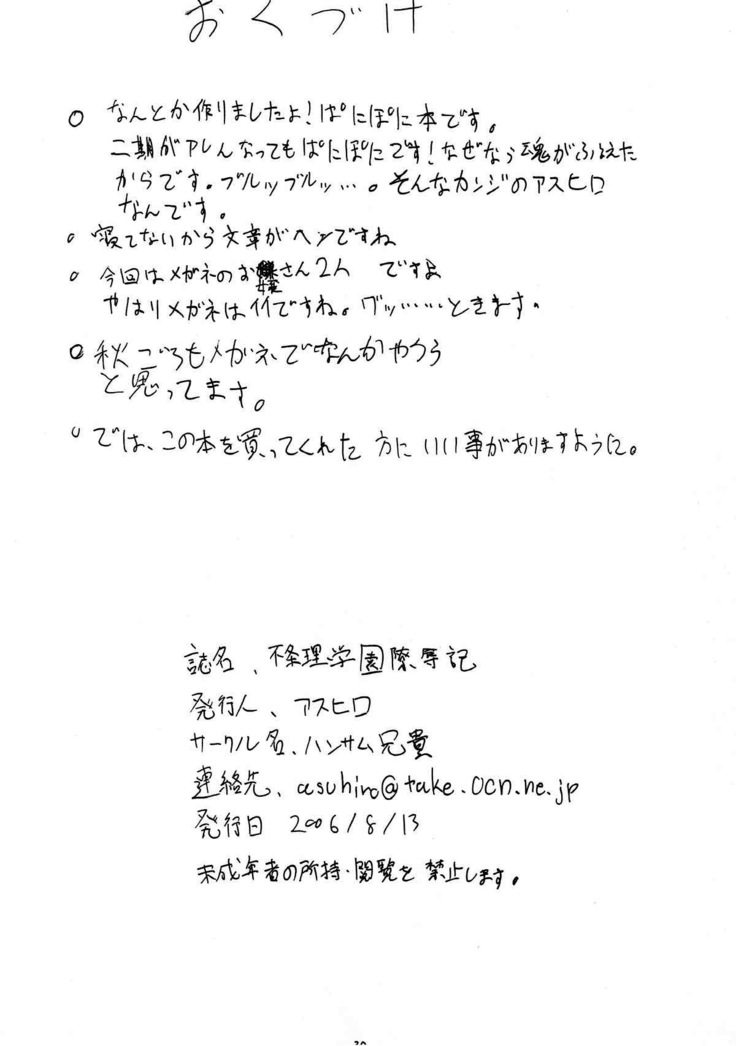 おくづけ
○ なんとか作りましたよ!ぱにぽに本です。
二期がアレんなってもぱにぽにです!なぜなら魂がふるえた
からです。ブルッブルッ…。そんなカンジのアスヒロ
なんです。
○ 寝てないから文章がヘンですね
○ 今回はメガネのお嬢さん2人 ですよ
やはりメガネはイイですね。グッ……ときます。
○ 秋ごろもメガネでなんかやろう
と思ってます。
○ では、この本を買ってくれた 方に いい事がありますように。
誌名、不条理学園陵辱記
発行人、アスヒロ
サークル名、ハンサム兄貴
連絡先、asuhiro@take.ocn.ne.jp
発行日 2006/8/13
未成年者の所持・閲覧を禁止します。